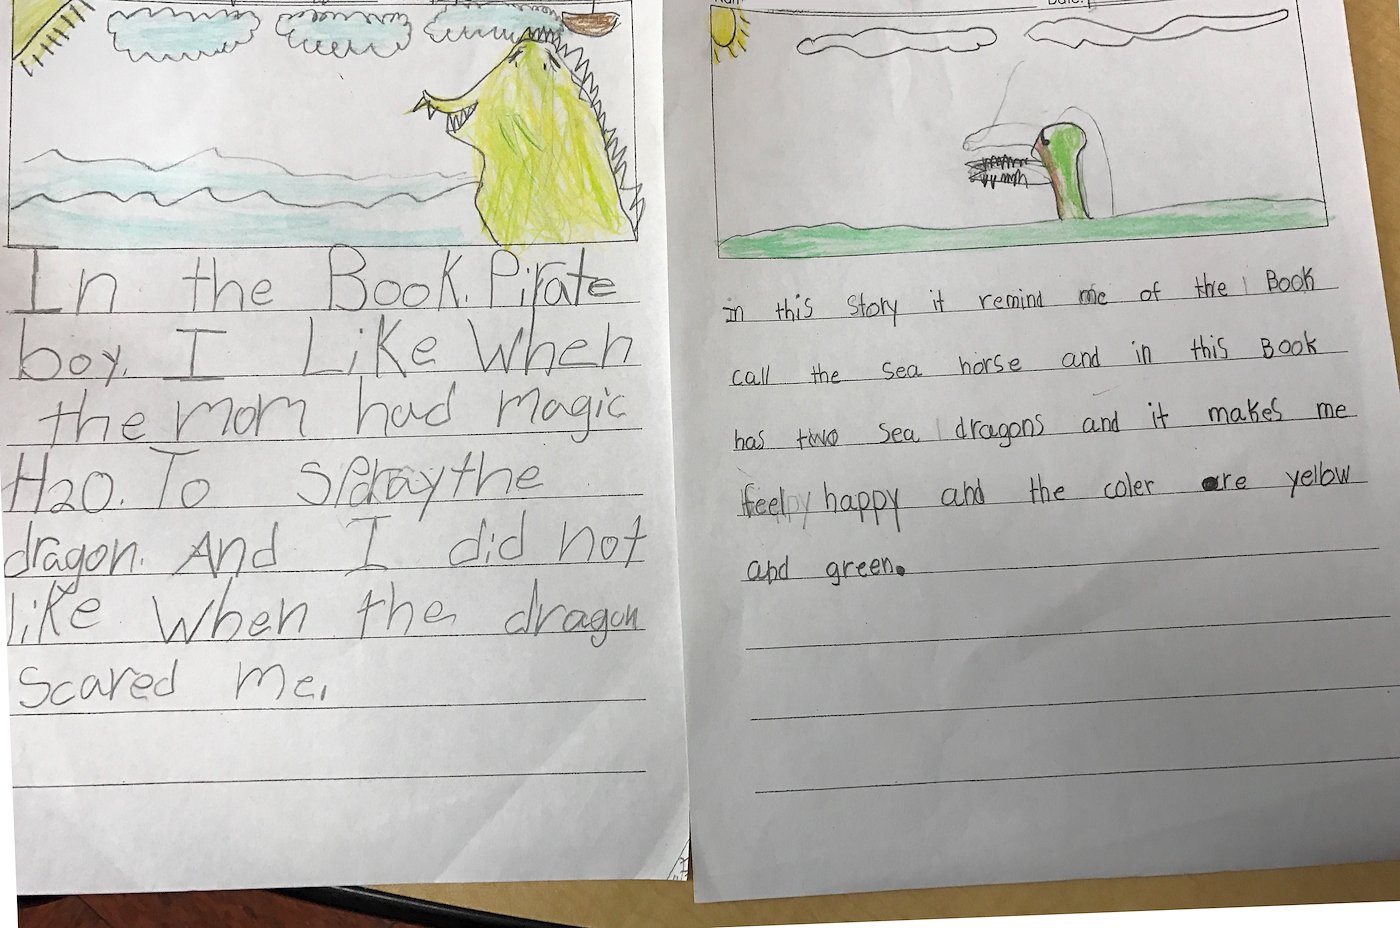 In the Book. Pirate
boy. I Like When
the mom had magic
H2O. To Spray the
dragon. And I did not
like when the dragon
scared me.
Date:
in this story it remind me of the Book
call the sea horse and in this Book
has two sea dragons and it makes me
feel happy and the coler are yellow
and green.